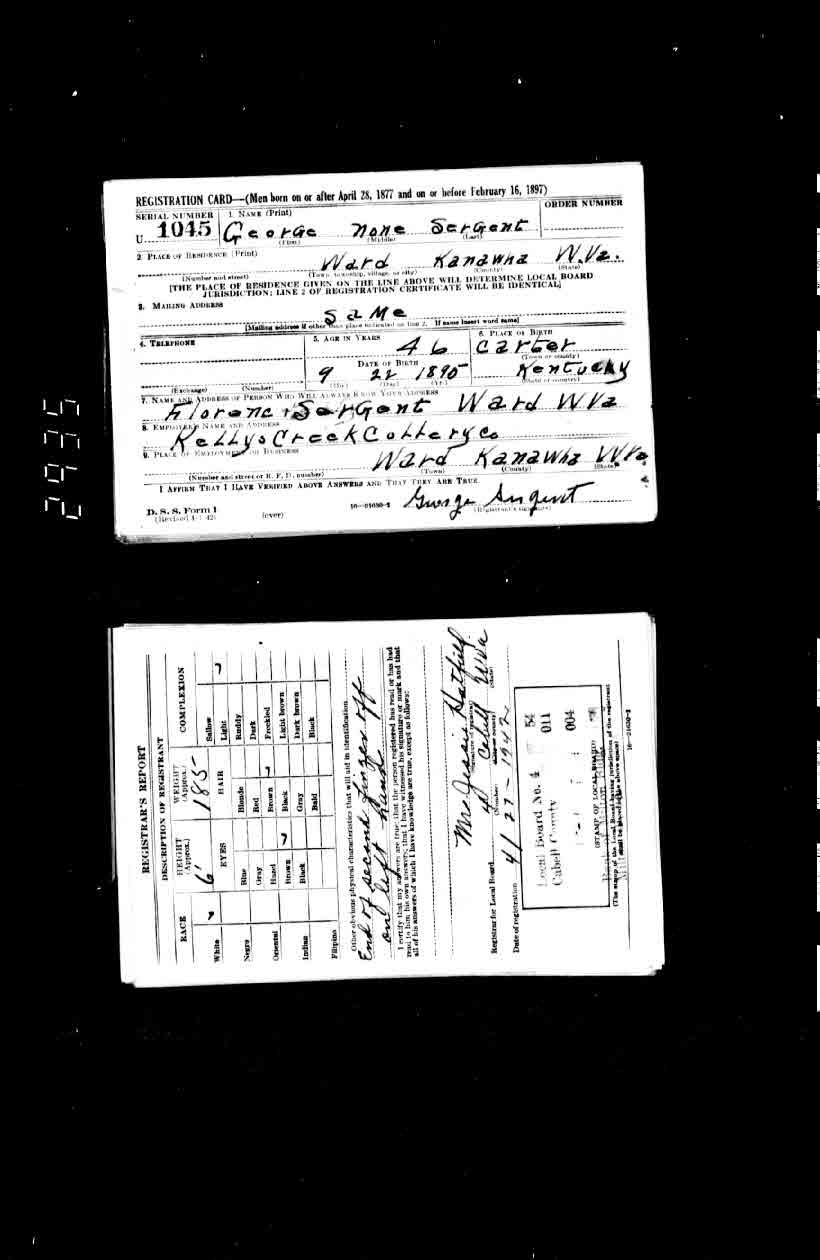 REGISTRATION CARD—(Men born on or after April 28, 1877 and on or before February 16, 1897)
SERIAL NUMBER 1. NAME (Print) ORDER NUMBER
U 1045 George None Sergent
(First) (Middle) (Last)
2. PLACE OF RESIDENCE (Print)
Ward Kanawha W.Va.
(Number and street) (Town, township, village, or city) (County) (State)
[THE PLACE OF RESIDENCE GIVEN ON THE LINE ABOVE WILL DETERMINE LOCAL BOARD
JURISDICTION; LINE 2 OF REGISTRATION CERTIFICATE WILL BE IDENTICAL]
3. MAILING ADDRESS
Same
[Mailing address if other than place indicated on line 2. If same insert word same]
4. TELEPHONE 5. AGE IN YEARS 6. PLACE OF BIRTH
46 Carter
(Town or county)
DATE OF BIRTH
9 22 1895 Kentucky
(Exchange) (Number) (Mo.) (Day) (Yr.) (State or country)
7. NAME AND ADDRESS OF PERSON WHO WILL ALWAYS KNOW YOUR ADDRESS
Sergent Ward W Va
8. EMPLOYER'S NAME AND ADDRESS
Kellys Creek Collery Co
9. PLACE OF EMPLOYMENT OR BUSINESS
Ward Kanawha W Va
(Number and street or R. F. D. number) (Town) (County) (State)
I AFFIRM THAT I HAVE VERIFIED ABOVE ANSWERS AND THAT THEY ARE TRUE.
D. S. S. Form 1 George Sergent
(over) 16—21630-2 (Registrant's signature)
REGISTRAR'S REPORT
DESCRIPTION OF REGISTRANT
RACE HEIGHT (Approx.) WEIGHT (Approx.) COMPLEXION
6' 185
EYES HAIR
White Blue Blonde Sallow
Light
Negro Gray Red Ruddy
Dark
Oriental Hazel Brown Freckled
Brown Black Light brown
Indian Black Gray Dark brown
Bald Black
Filipino
Other obvious physical characteristics that will aid in identification
End of second finger off
on left hand
I certify that my answers are true; that the person registered has read or has had
read to him his own answers; that I have witnessed his signature or mark and that
all of his answers of which I have knowledge are true, except as follows:
Mrs Jessie Hatfield
(Signature of registrar)
Registrar for Local Board 4 Cabell W Va
(Number) (City or county) (State)
Date of registration 4/27-1942
Local Board No. 4 54
Cabell County 011
004
(STAMP OF LOCAL BOARD)
(The stamp of the Local Board having jurisdiction of the registrant
shall be placed in the above space)
16—21630-2
2935